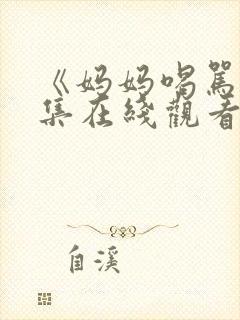 《妈妈喝駡
集在綫觀看
自溪